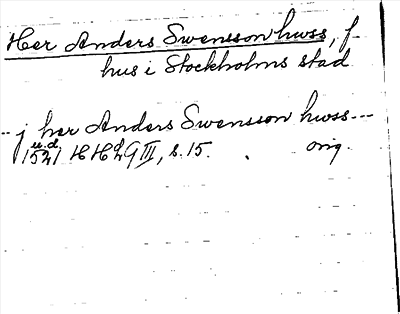 Her Anders Swensson hwss, f.
hus i Stockholms stad
-- j her Anders Swensson hwss---
u.d.
1521 HH 9 III, s. 15. orig.